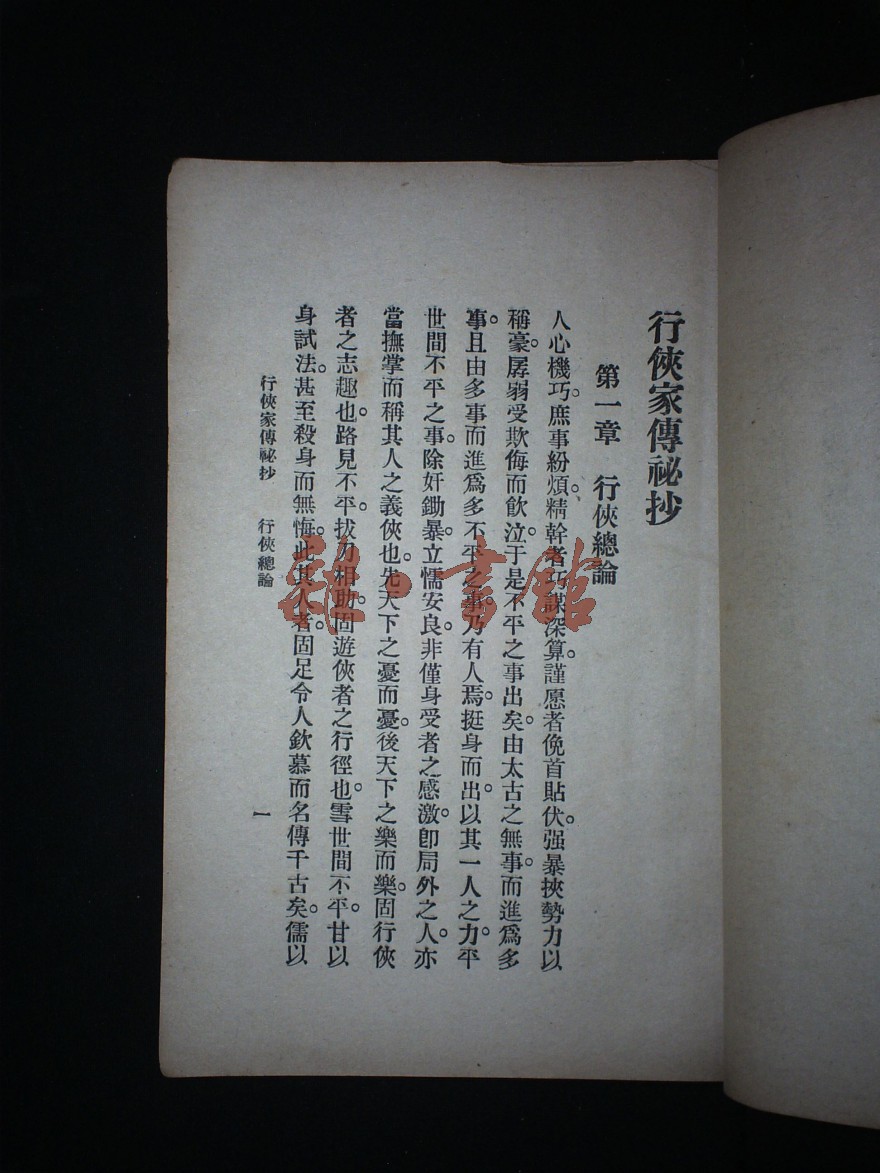 行俠家傳祕抄
第一章 行俠總論
人心機巧。庶事紛煩。精幹者巧謀深算。謹愿者俛首貼伏。强暴挾勢力以
稱豪。孱弱受欺侮而飲泣。于是不平之事出矣。由太古之無事。而進爲多
事。且由多事而進爲多不平之事。乃有人焉。挺身而出。以其一人之力。平
世間不平之事。除奸鋤暴。立懦安良。非僅身受者之感激。卽局外之人。亦
當撫掌而稱其人之義俠也。先天下之憂而憂。後天下之樂而樂。固行俠
者之志趣也。路見不平。拔刀相助。固遊俠者之行徑也。雪世間不平。甘以
身試法。甚至殺身而無悔。此其人者。固足令人欽慕而名傳千古矣。儒以
行俠家傳祕抄 行俠總論
一
雜·書館